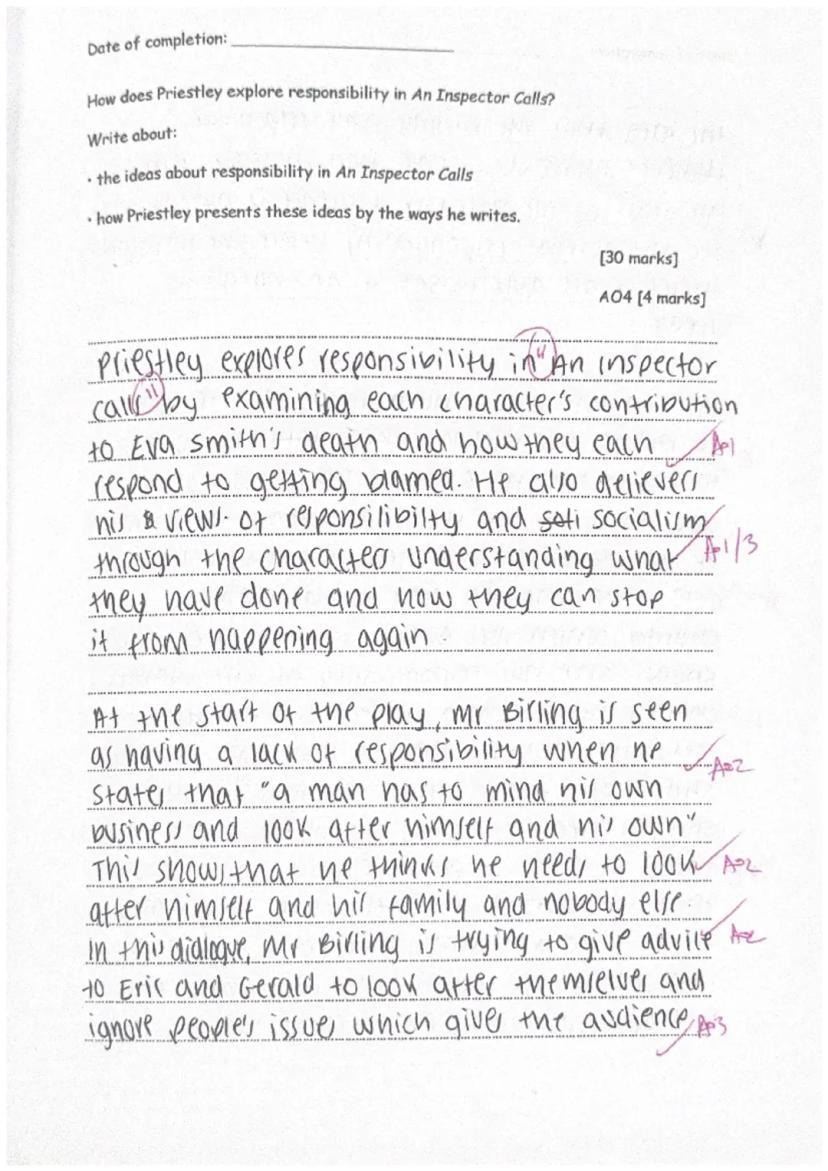 Date of completion:
How does Priestley explore responsibility in An Inspector Calls?
Write about:
• the ideas about responsibility in An Inspector Calls
• how Priestley presents these ideas by the ways he writes.
[30 marks]
AO4 [4 marks]
Priestley explores responsibility in " An Inspector
calls " by examining each character's contribution
to Eva Smith's death and how they each AO1
respond to getting blamed. He also delievers
his views of responsilibilty and soti socialism
through the characters understanding what AO1/3
they have done and how they can stop
it from happening again
At the start of the play, Mr Birling is seen
as having a lack of responsibility when he AO2
states that "a man has to mind his own
business and look after himself and his own"
This shows that he thinks he needs to look AO2
after himself and his family and nobody else
In this dialogue, Mr Birling is trying to give advice AO2
to Eric and Gerald to look after themselves and
ignore people's issues which gives the audience AO3